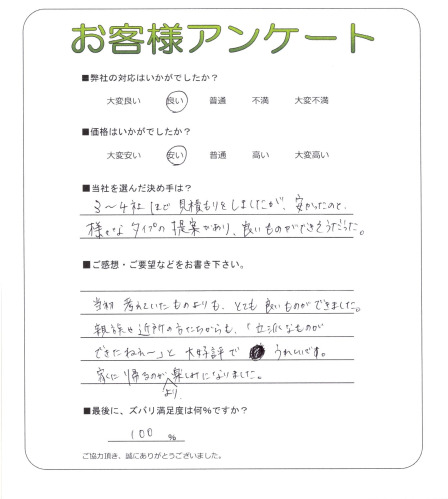 お客様アンケート
■弊社の対応はいかがでしたか？
大変良い 良い 普通 不満 大変不満
■価格はいかがでしたか？
大変安い 安い 普通 高い 大変高い
■当社を選んだ決め手は？
3〜4社ほど見積もりをしましたが、安かったのと、
様々なタイプの提案があり、良いものができそうだった。
■ご感想・ご要望などをお書き下さい。
当初考えていたものよりも、とても良いものができました。
親族や近所の方たちからも、「立派なものが
できたねぇ〜」と大好評で うれしいです。
家に帰るのが楽しみになりました。
より
■最後に、ズバリ満足度は何%ですか？
100 %
ご協力頂き、誠にありがとうございました。